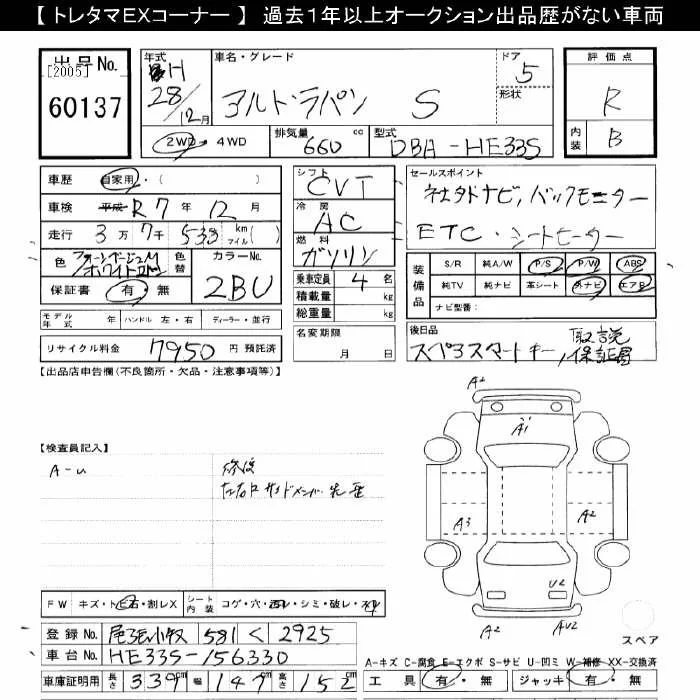 【 トレタマEXコーナー 】 過去1年以上オークション出品歴がない車両
出品No.
[2005]
60137
年式
H
28/12月
車名・グレード
アルト・ラパン S
ドア
5
形状
評価点
R
内装
B
2WD・4WD
排気量
660 cc
型式
DBA-HE33S
車歴
自家用・( )
車検
平成 R7年 12月
走行
3万7千533 km マイル( )
色
色替
カラーNo.
2BU
保証書 有・無
シフト
CVT
冷房
AC
燃料
ガソリン
乗車定員 4 名
積載量 kg
総重量 kg
名変期限
月 日
セールスポイント
社外ナビ, バックモニター
ETC・シートヒーター
装備品
S/R 純A/W P/S P/W ABS
純TV 純ナビ 革シート 外ナビ エアB
ナビ型番:
モデル年式 年 ハンドル 左・右 ディーラー・並行
リサイクル料金 7950 円 預託済
後日品
スペアスマートキー, 取説
保証書
【出品店申告欄(不良箇所・欠品・注意事項等)】
【検査員記入】
A-U
修復
A2
A1
A3
A2
U2
A2
AU2
スペア
FW キズ・トビ石・割レX
シート内装 コゲ・穴・スレ・シミ・破レ・
登録No. 尾張小牧 581 く 2925
車台No. HE33S-156330
車庫証明用 長さ 339 幅 147 高さ 152
A-キズ C-腐食 E-エクボ S-サビ U-凹ミ W-補修 XX-交換済
工具 有・無 ジャッキ 有・無